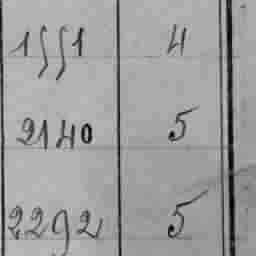 1551 4
2140 5
2292 5